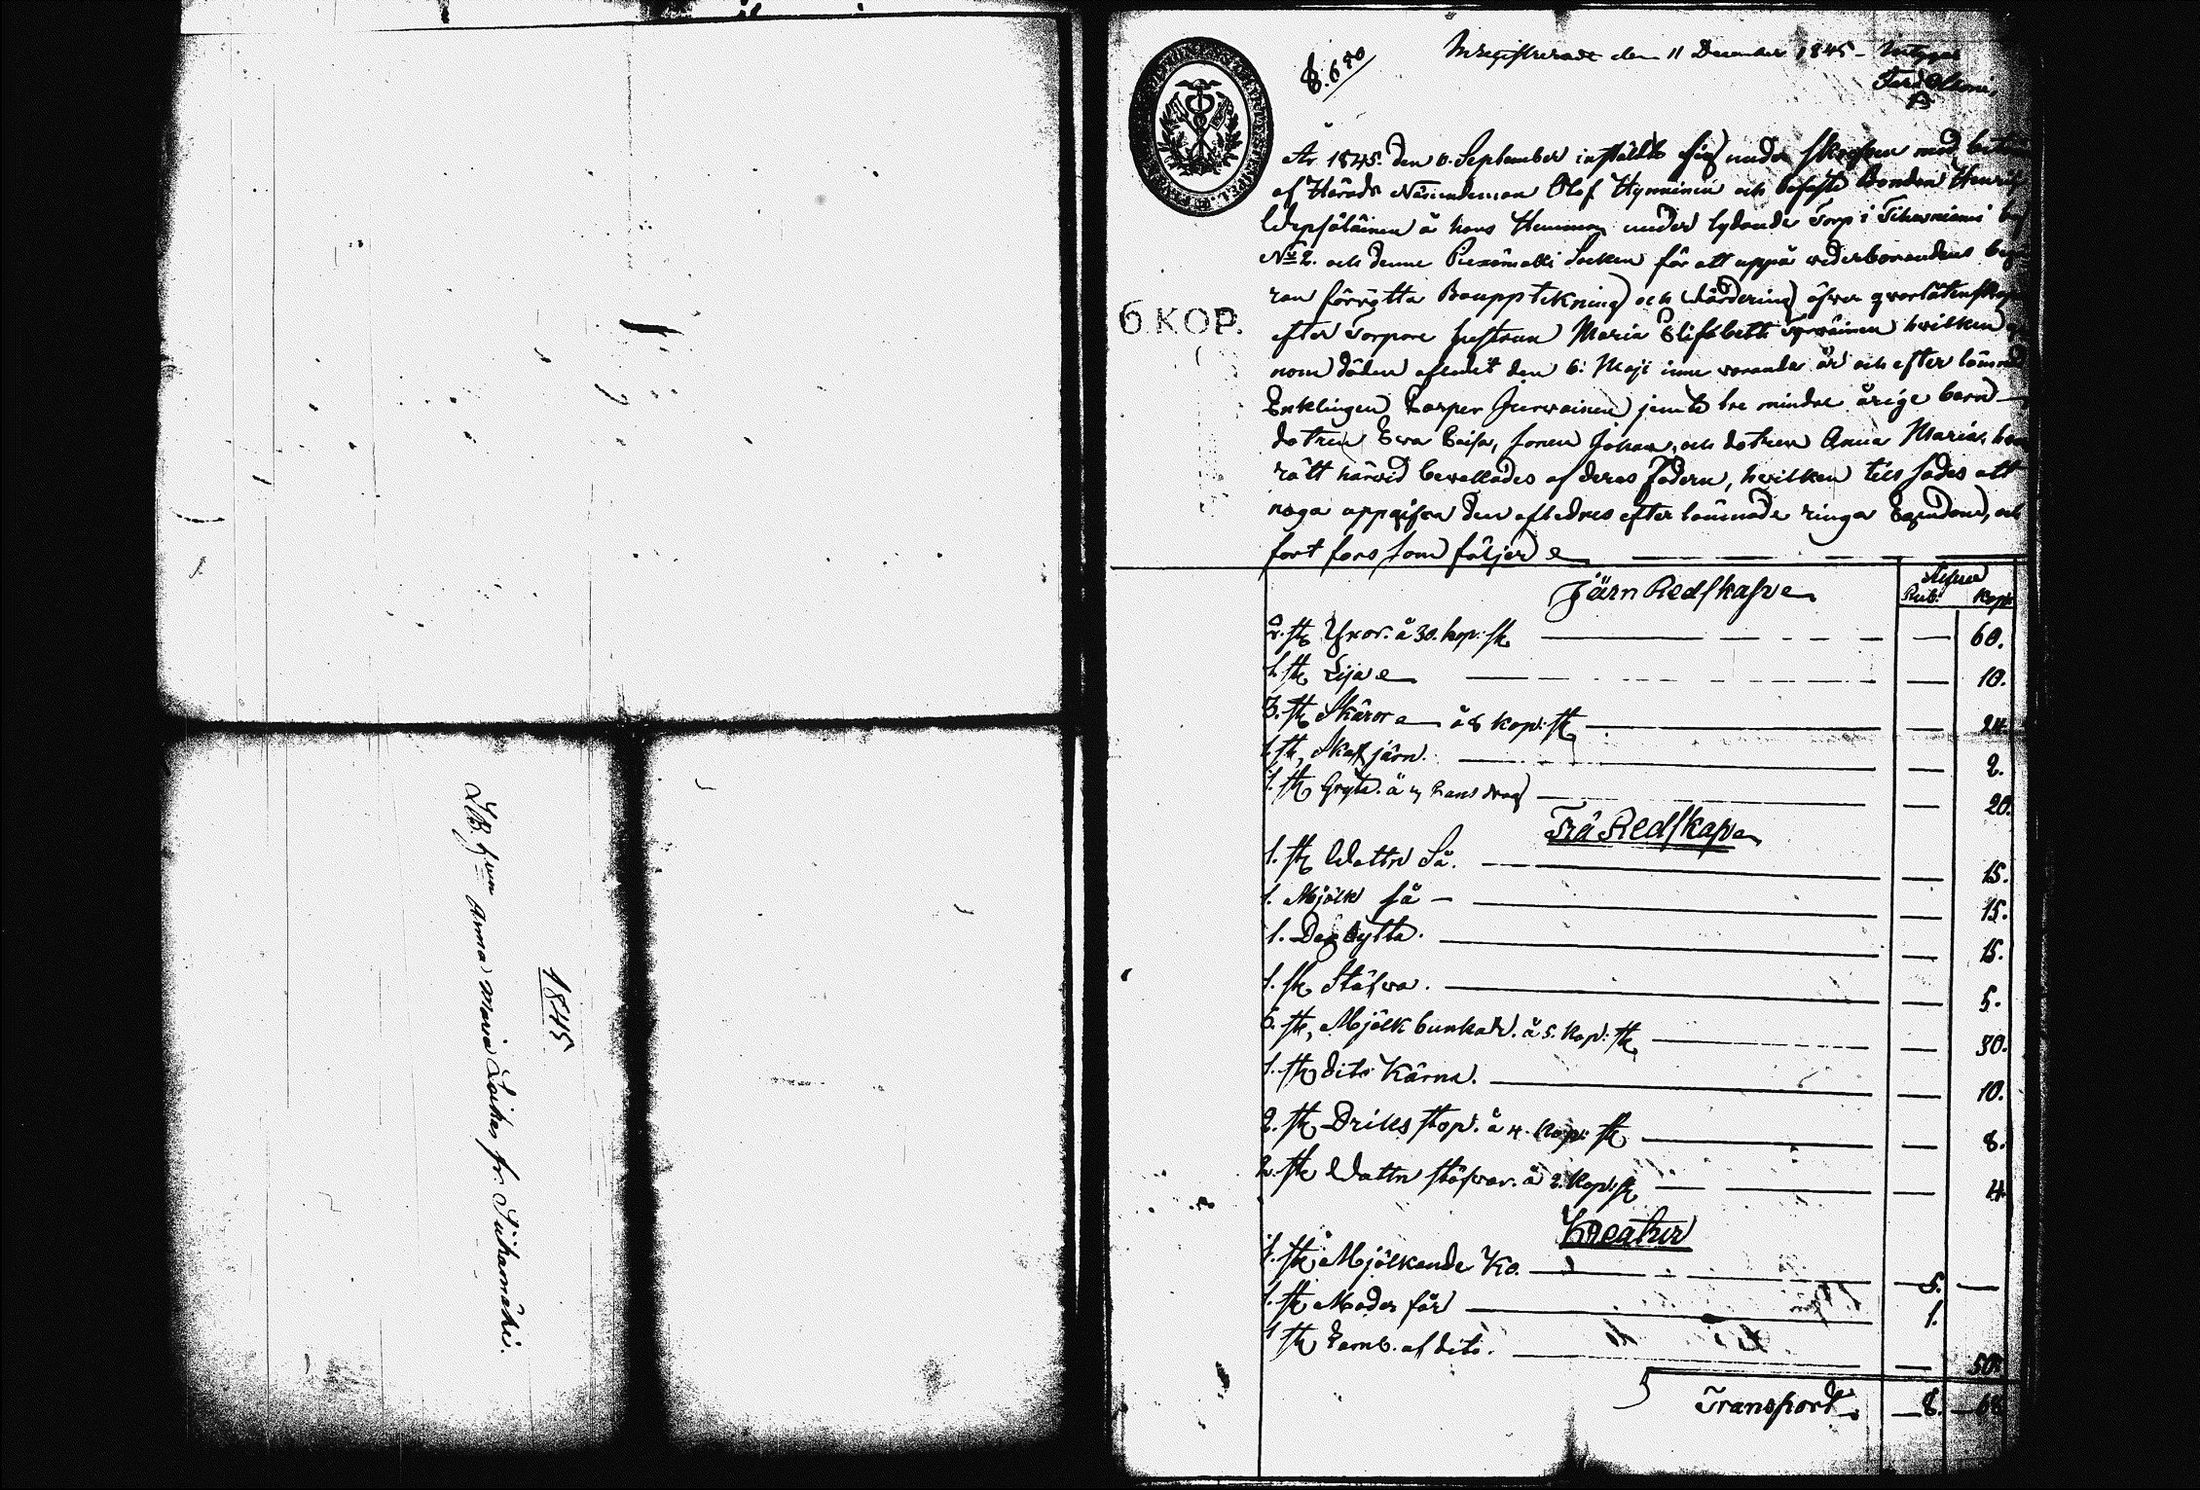 1845
Anna Maria Loikas fr. Siikamäki.
6 KOP.
Inregistrerade den 11 December 1845 —
År 1845. den September instälde sig under skrefven med
af Härads Nämndeman Olof Hynninen och Bonden
å hans Hemman under lydande Torp i Tihusniemi
No 2. och denne Piexämäki Socken för att uppå wederborandens
ran förrätta Bouppteckning och Värdering öfver qvarlåtenskap
efter Torpare hustrun Maria Elisabeth hvilken
nom döden afledit den 6: Maji inne varande år och efter lämnad
Enklingen Casper Jurvainen jemte tre mindre årige barn —
dotren Eva Caisa, sonen Johan, och dotren Anna Maria,
rätt härvid bevakades af deras Fadern, hvilken till sades att
noga uppgifva den aflednes efter lämnade ringa Egendom, och
fort fors som följer
Järn Redskap
Rub: Kop:
2. st Yxor. à 30. kop: st 60.
1 st Lija 10.
3. st Skäror à 8 kop: st 24.
1 st, Skaf järn. 2.
1. st Gryta. 20.
Trä Redskap
1. st Wattn Så. 15.
1. Mjölk så — 15.
1. Deg bytta. 15.
1. st Stäfva. 5.
6. st, Mjölk bunkar. à 5. Kop: st 30.
1. st dito Kärna. 10.
2. st Driks stop. à 4. Kop: st 8.
2. st Wattn stäfvar. à 2. Kop: st 4
Kreatur
1. st Mjölkande Ko. 5. —
1. st Moder får 1.
1 st Lamb. af dito. 50.
Transport. 8. 68